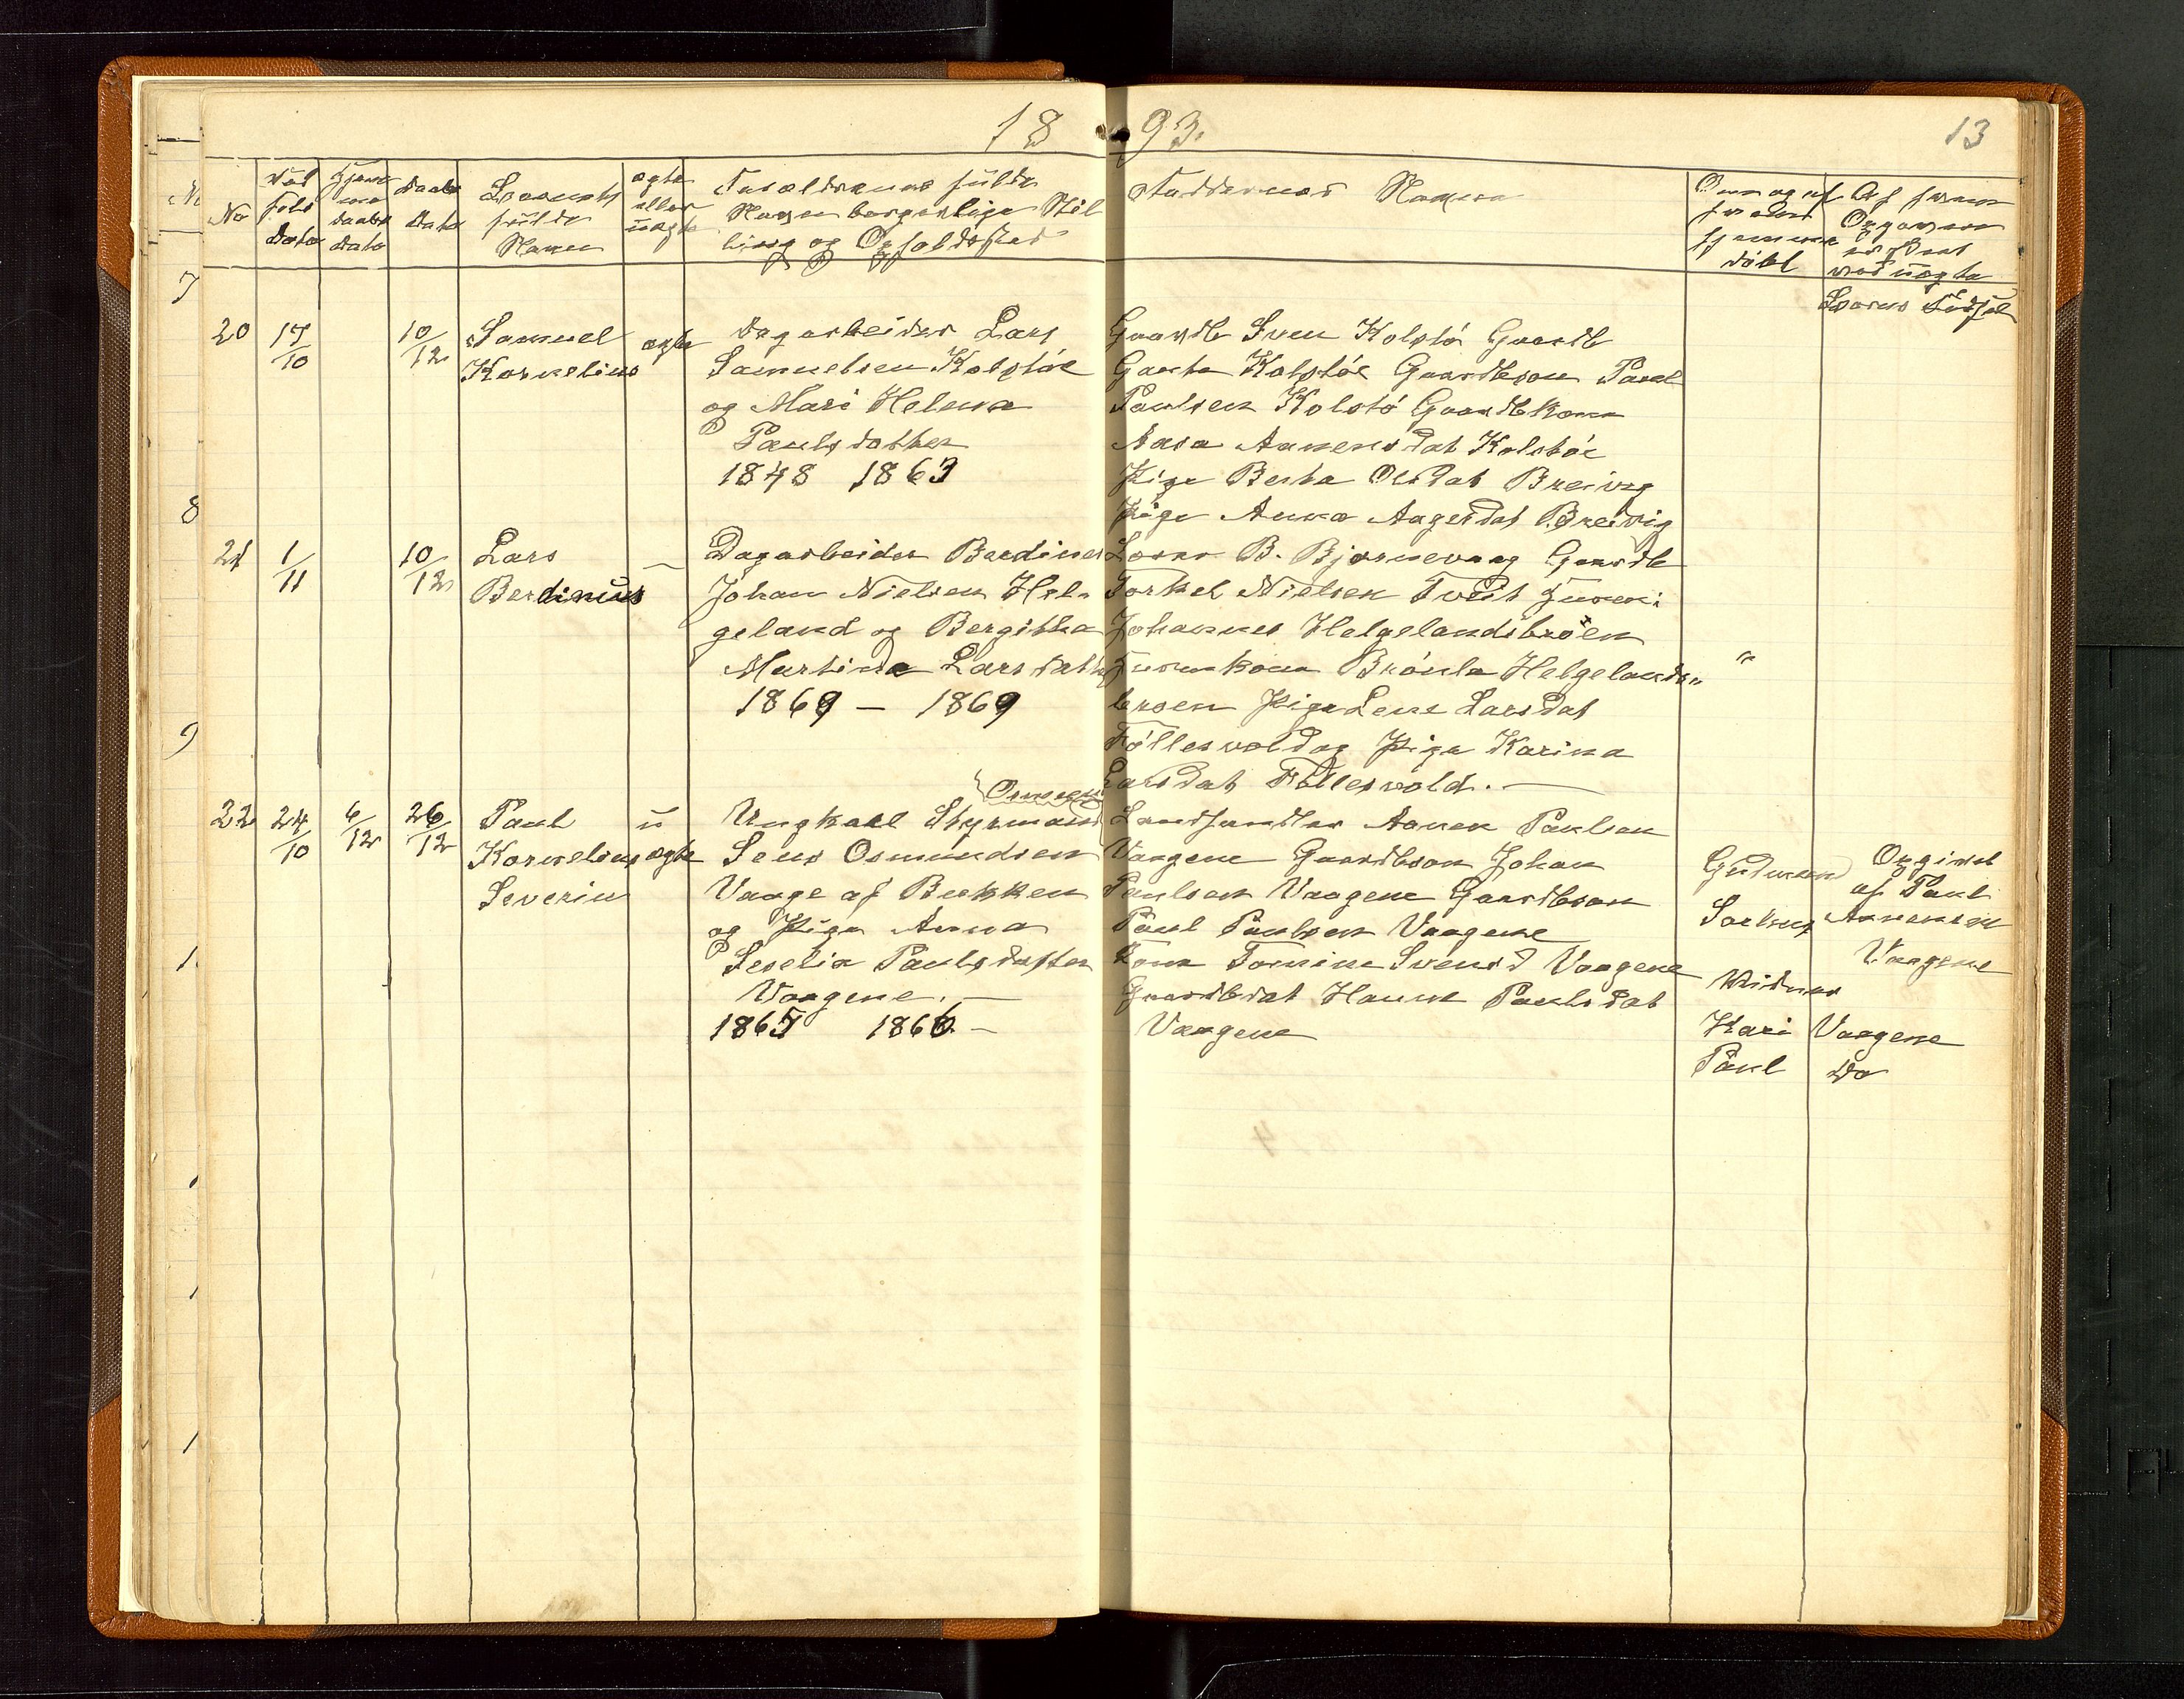 1893.
13
No
Fød
sels
Dato
Hjem
me
daabs
Dato
Daabs
Dato
Barnets
fulde
Navn
ægte
eller
uægte
Forældrenes fulde
Navne borgerlige Stil
ling og Opholdssted
Faddernes Navne
Om og af
hvem
hjemme
døbt
Af hvem
Opgaven
er skeet
ved uægte
Børns Fødsel
20
17/10
10/12
Samuel
Kornelius
ægte
Dagarbeider Lars
Samuelsen Kolstöe
og Mari Helena
Paulsdatter
1848 1863
Gaardb Sven Kolstö Gaardb
Gaute Kolstöe Gaardbson Paul
Paulsen Kolstö Gaardbkone
Aasa Aanensdat Kolstöe
Pige Berta Olsdat Breivig
Pige Anna Aagesdat Breivig
21
1/11
10/12
Lars
Berdinius
—
Dagarbeider Berdines
Johan Nielsen Hel-
geland og Bergitha
Martine Larsdatter
1869 — 1869
Lars B. Bjørnevaag Gaardb
Torkel Nielsen Tveit
Johannes Helgelandsbröen
Brönla Helgelands-
broen Pige Lene Larsdat
Föllesvold og Pige Karina
Larsdat Föllesvold. —
"
22
24/10
6/12
26/12
Paul
Kornelius
Severin
u
ægte
Osmund
Ungkarl Styrmand
Jens Osmundsen
Vaage af Bukken
og Pige Anna
Seselia Paulsdatter
Vaagene. —
1865 1866 —
Landhandler Aanen Paulsen
Vaagene Gaardbson Johan
Paulsen Vaagene Gaardbson
Paul Paulsen Vaagene
Kone Tomine Svensd Vaagene
Gaardbdat Hanne Paulsdat
Vaagene
Gudmund
Vidner
Kari Vaagene
Paul Do
Opgivet
af Paul
Aanensen
Vaagene